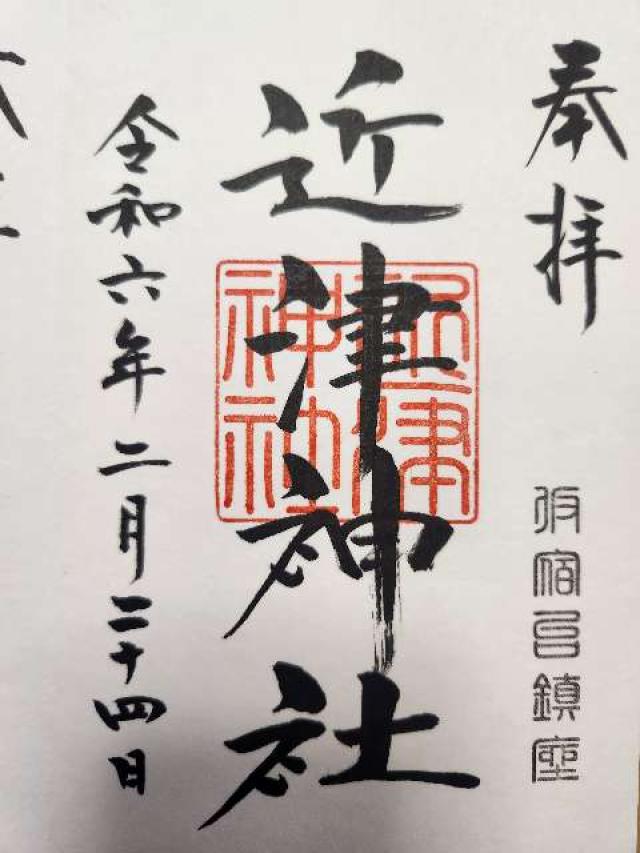 奉拝
仮宿邑鎮座
近津神社
近津
神社
令和六年二月二十四日